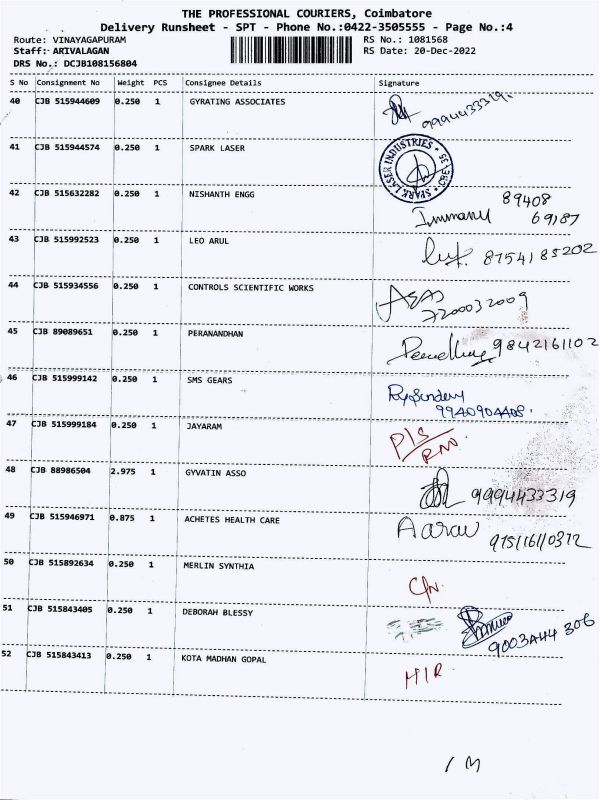 THE PROFESSIONAL COURIERS, Coimbatore
Delivery Runsheet - SPT - Phone No.:0422-3505555 - Page No.:4
Route: VINAYAGAPURAM RS No.: 1081568
Staff: ARIVALAGAN RS Date: 20-Dec-2022
DRS No.: DCJB108156804
S No Consignment No Weight PCS Consignee Details Signature
40 CJB 515944609 0.250 1 GYRATING ASSOCIATES 9994433319.
41 CJB 515944574 0.250 1 SPARK LASER SPARK LASER INDUSTRIES
42 CJB 515632282 0.250 1 NISHANTH ENGG 89408
Immanuel 69187
43 CJB 515992523 0.250 1 LEO ARUL 8754185202
44 CJB 515934556 0.250 1 CONTROLS SCIENTIFIC WORKS
7200032009
45 CJB 89089651 0.250 1 PERANANDHAN 9842161102
46 CJB 515999142 0.250 1 SMS GEARS
9940904408.
47 CJB 515999184 0.250 1 JAYARAM P/S
48 CJB 88986504 2.975 1 GYVATIN ASSO 9994433319
49 CJB 515946971 0.875 1 ACHETES HEALTH CARE Aarav
50 CJB 515892634 0.250 1 MERLIN SYNTHIA C/N.
51 CJB 515843405 0.250 1 DEBORAH BLESSY
52 CJB 515843413 0.250 1 KOTA MADHAN GOPAL HIR.